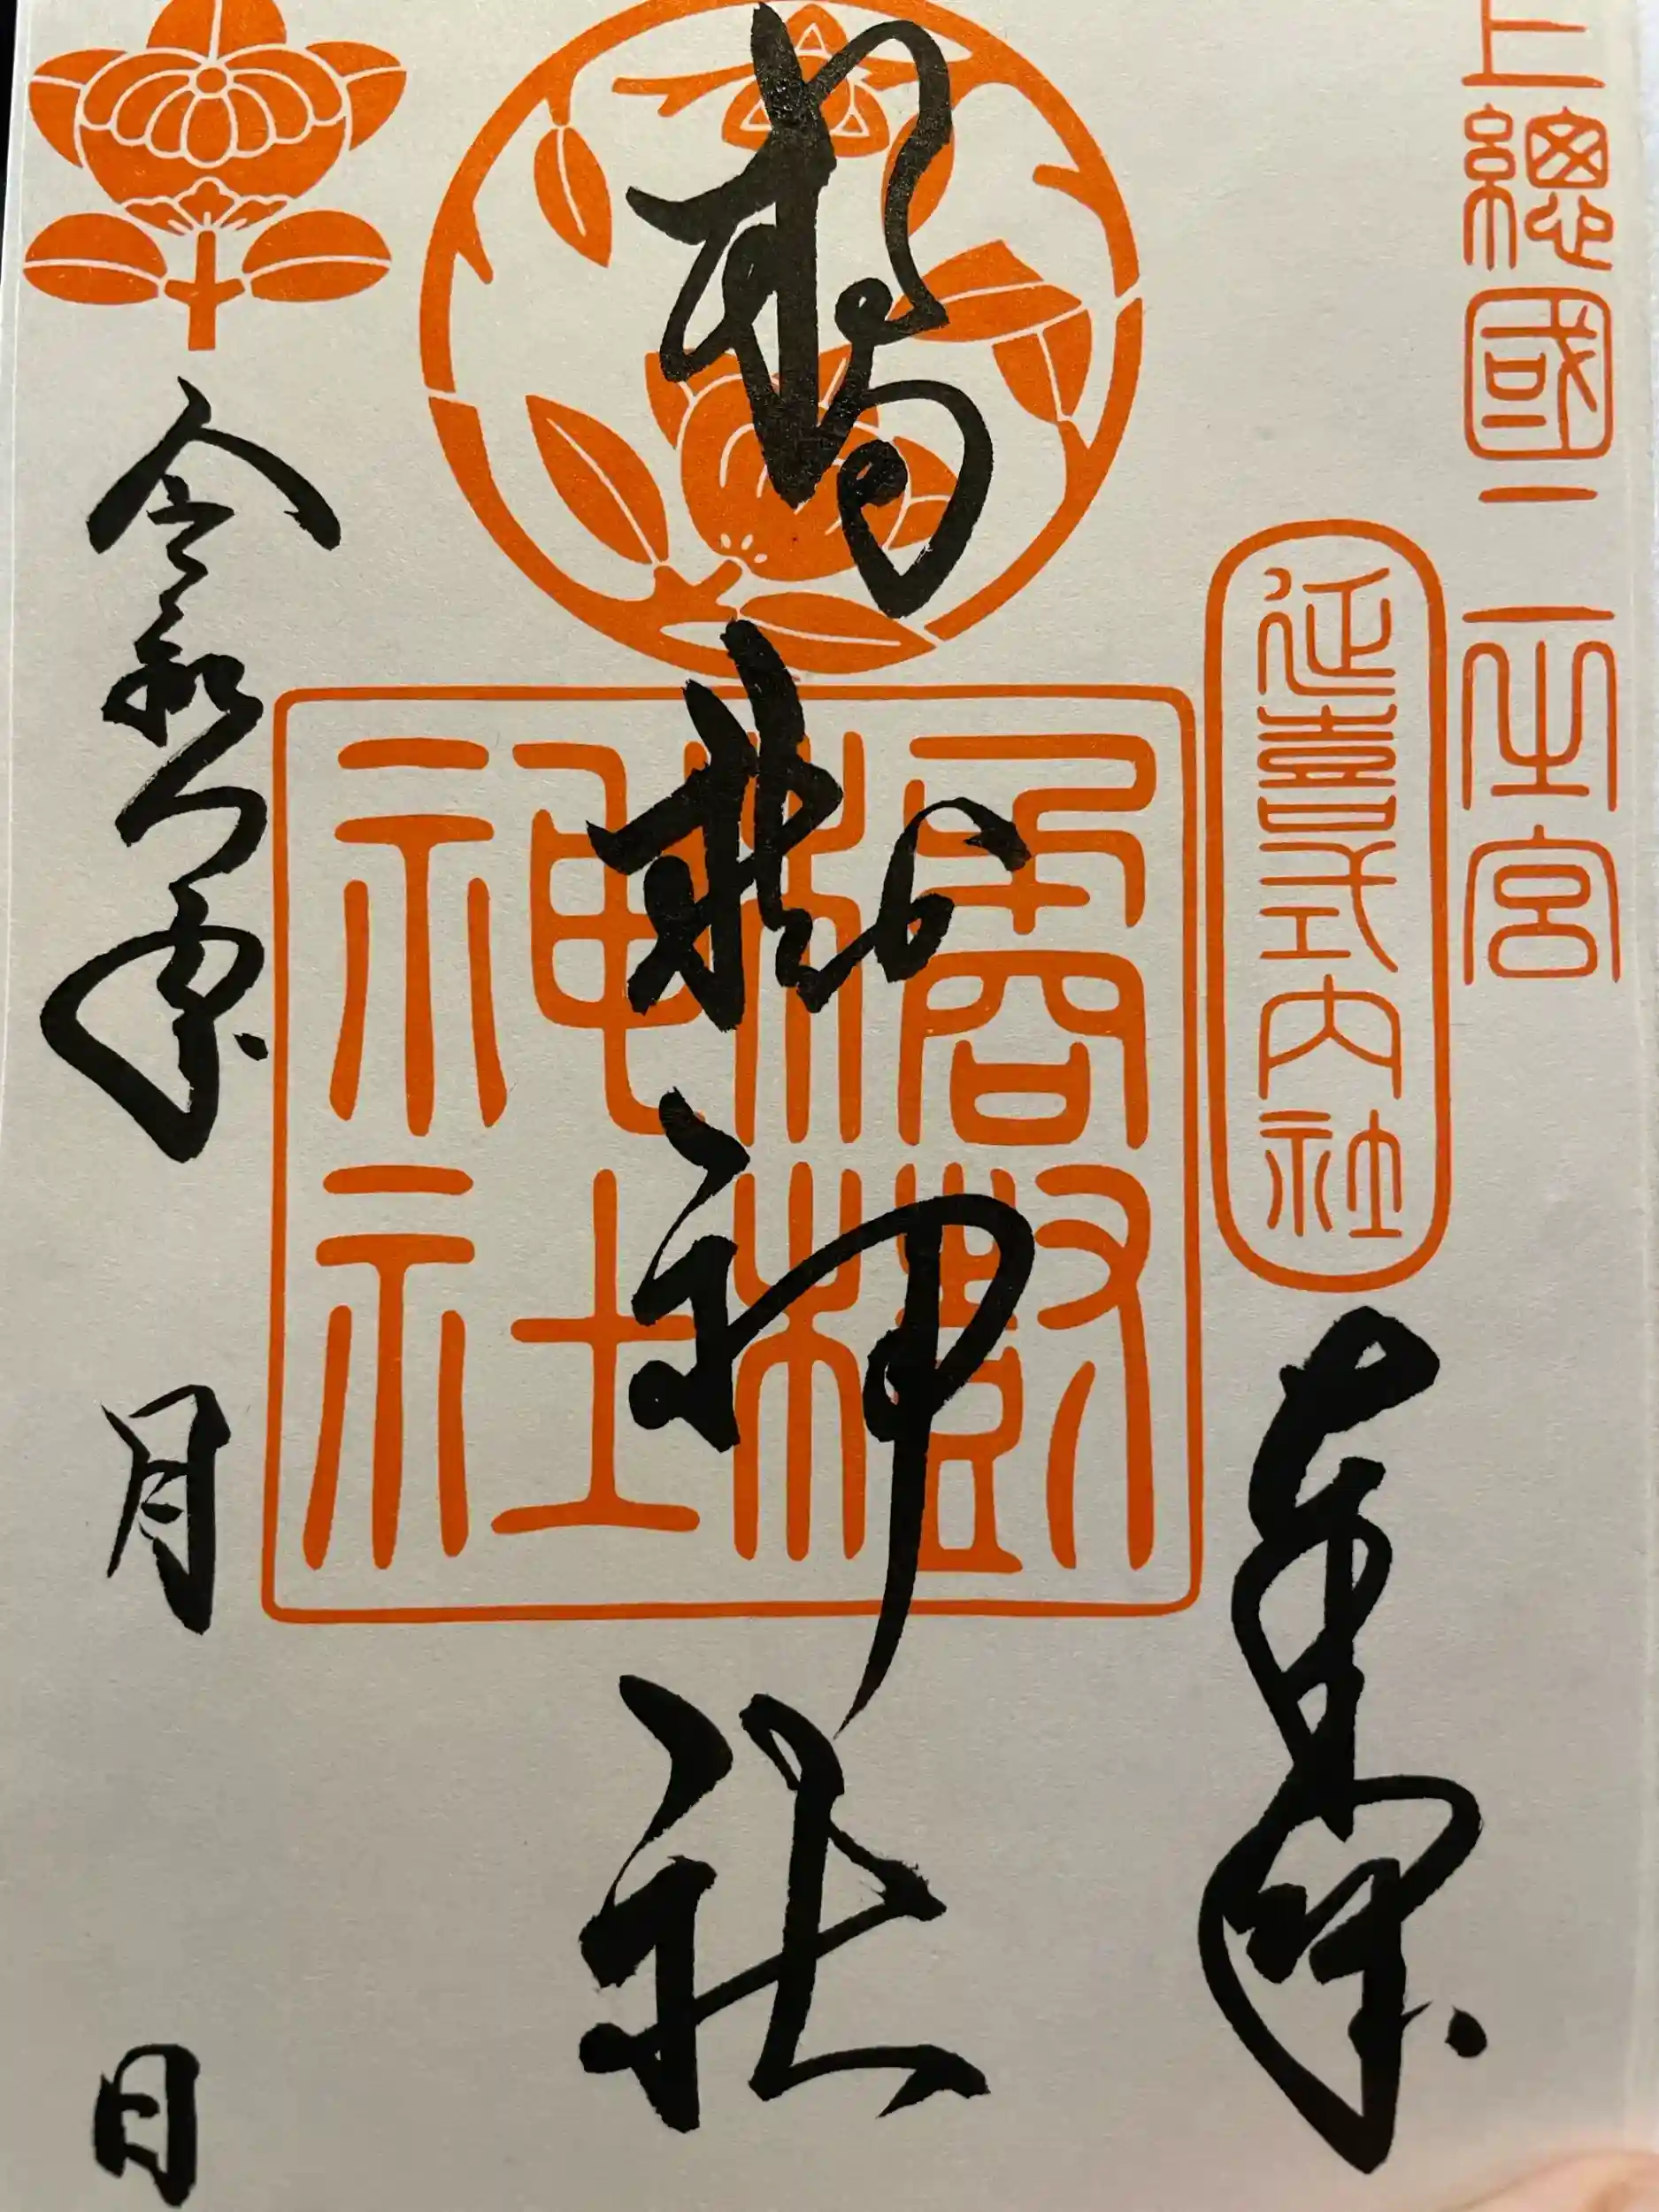 上總國二之宮
延喜式内社
奉拝
橘樹神社
橘樹神社
令和八年 月 日